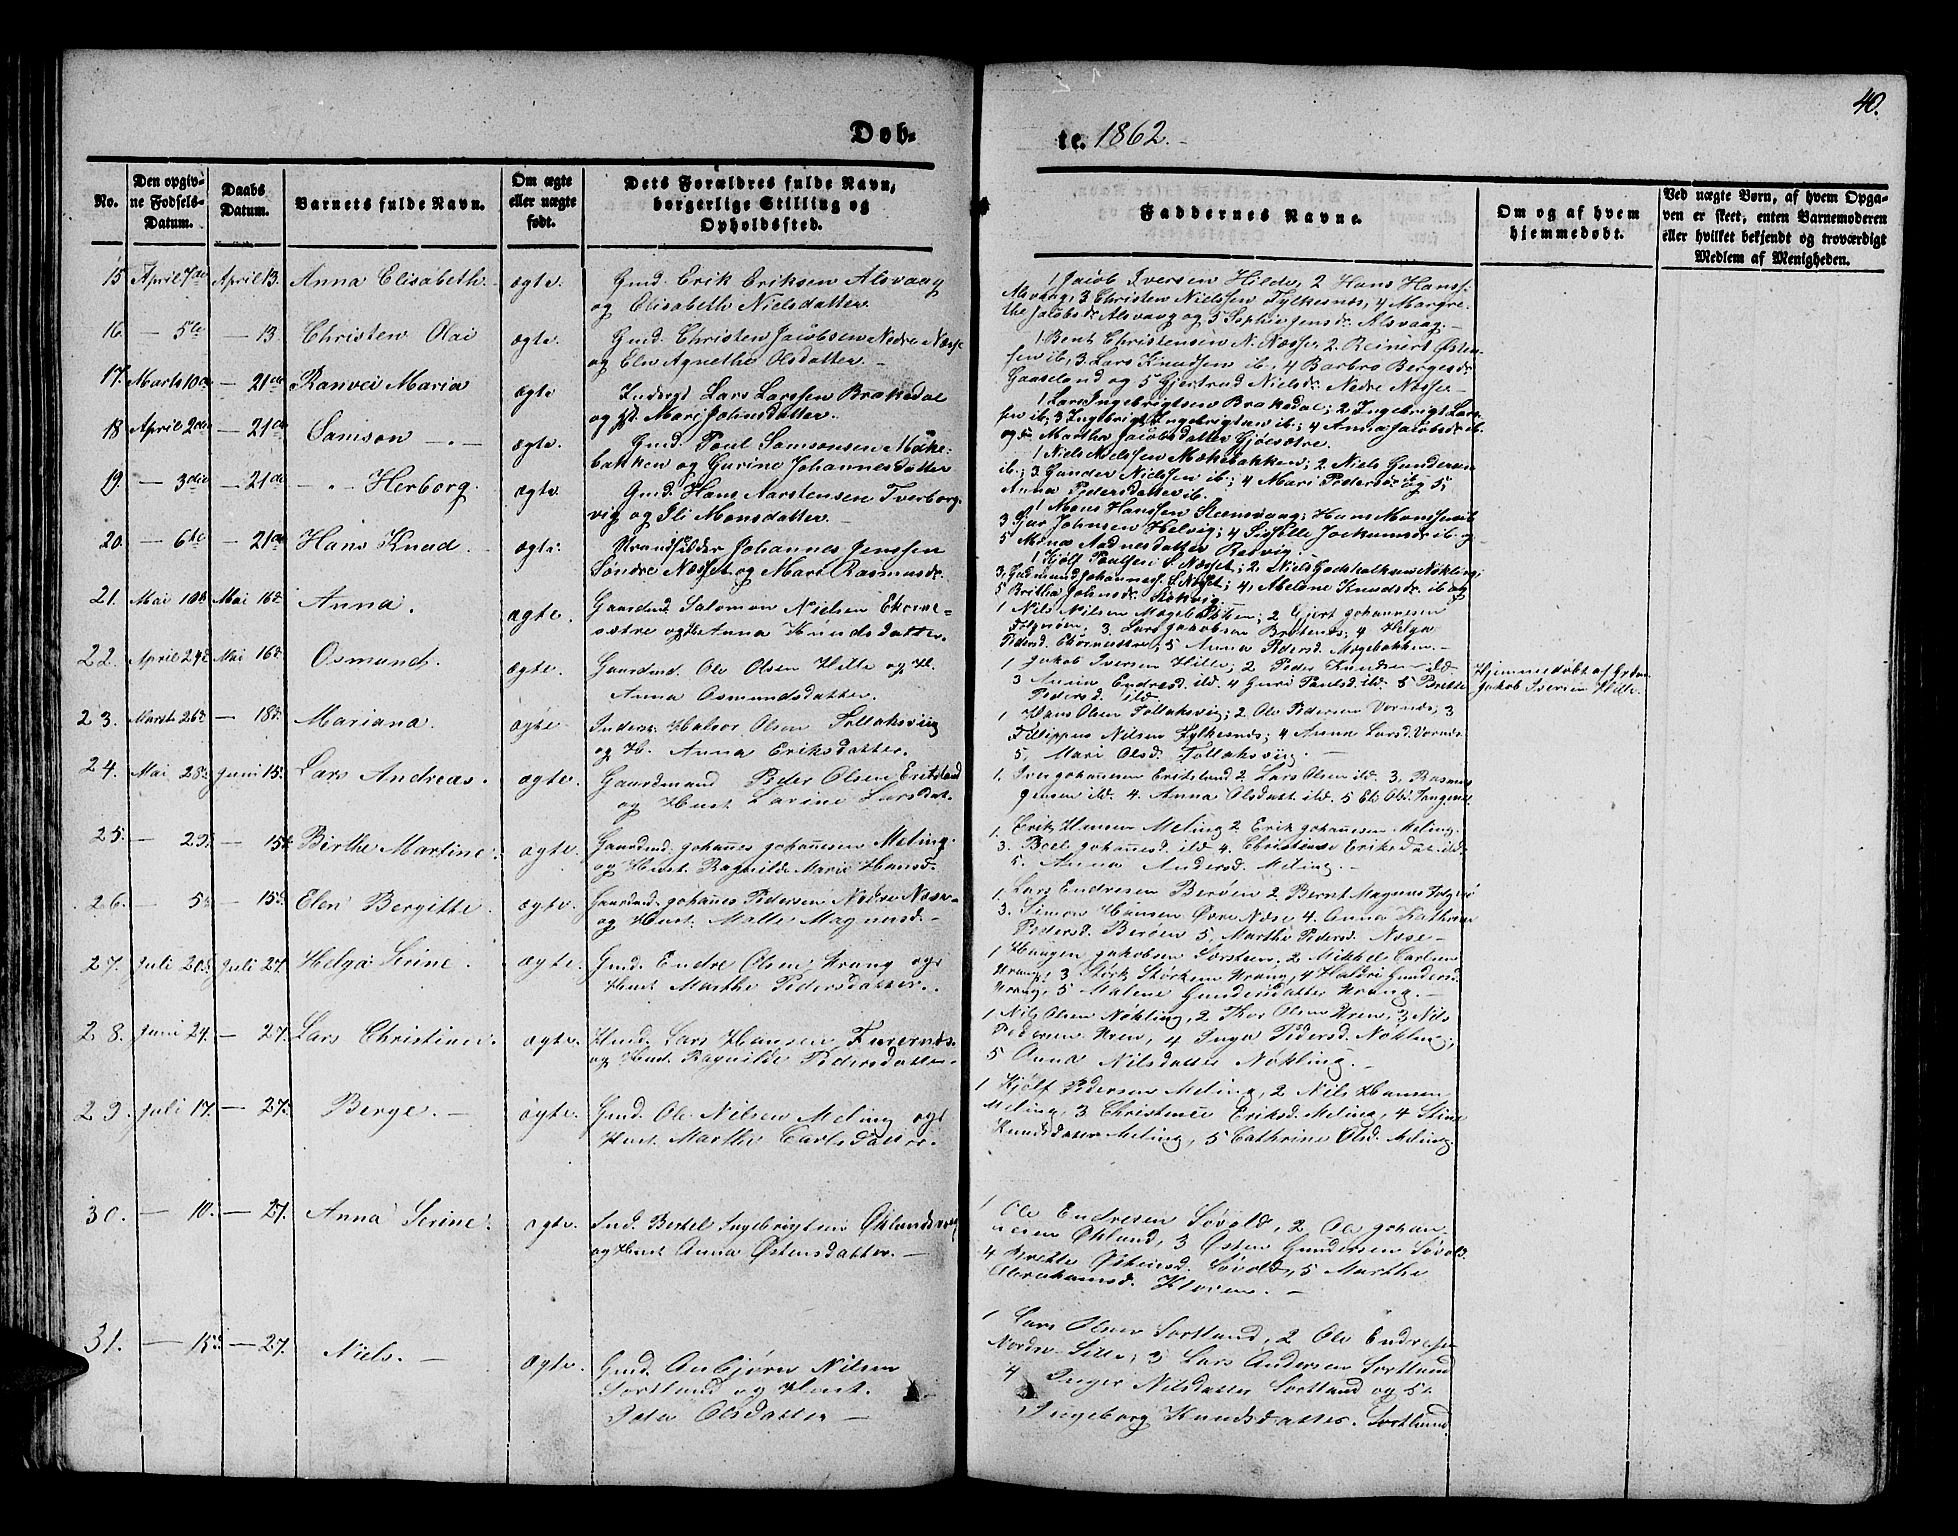 40.
Døb-
te. 1862.-
No.
Den opgiv-
ne Fødsels-
Datum.
Daabs
Datum.
Barnets fulde Navn.
Om ægte
eller uægte
født.
Dets Forældres fulde Navn,
borgerlige Stilling og
Opholdssted.
Faddernes Navne.
Om og af hvem
hjemmedøbt.
Ved uægte Børn, af hvem Opga-
ven er skeet, enten Barnemoderen
eller hvilket bekjendt og troværdigt
Medlem af Menigheden.
15 April 7de April 13. Anna Elisabeth. ægte. Gmd. Erik Eriksen Alsvaag
og Elisabeth Nielsdatter.
1 Jacob Iversen Hilde, 2 Hans Hans-
Alsvaag, 3 Christen Nielssen Fylkesnæs, 4 Margre-
the Jacobsdr. Alsvaag og 5 Sophie Jensdr. Alsvaag.
16. — 5te — 13. Christen Olai ægte. Gmd. Christen Jacobsen Nedre Næsse
og Elen Agnethe Olsdatter.
1. Bent Christensen N. Næsse, 2. Reinert Østen-
sen ib, 3 Lars Knudsen ib, 4 Barbro Bergesdr.
Gaaseland og 5 Gjertrud Nielsdr. Nedre Næsse
17. Marts 10de — 21de Ranvei Maria ægte Inderst Lars Larssen Brakedal
og Mari Johnsdatter.
1 Lars Ingebrigtsen Brakedal; 2 Ingebrigt Lars-
sen ib; 3 Ingebrigt Ingebrigtsen ib; 4 Anna Jacobsdr. ib.
og 5. Martha Jacobsdatter Gjøesætre.
18 April 2den — 21de Samson ægte. Gmd. Poul Samsonsen Mæke-
bakken og Gurine Johannesdatter
1 Niels Nielssen Mækebakken; 2. Niels Gundersen
ib; 3 Gunder Nielsen ib; 4 Mari Pedersdr. og 5;
Anna Pedersdatter ib.
19. — 3die — 21de Herborg. ægte. Gmd. Hans Aarstensen Tverborg-
vig og Ili Monsdatter.
1 Mons Hanssen Steensvaag; Hans Monssen ib
3 Johnsen Helvig; 4 Sisselle Jockumsdr. ib. og
5 Mona Aadnesdatter Rødvig.
20. — 6te — 21de Hans Knud. ægte. Strandsidder Johannes Jenssen
Søndre Næsset og Mari Rasmusdr.
1 Kjølf Poulsen S. Næsset; 2. Niels Godskalksen Nøkling;
3, Gudmund Johanness. S. Næsset; 4, Abelone Knudsdr. ib og
5 Britha Johnsdr. Stokvig.
21. Mai 10de Mai 16d. Anna. ægte. Gaardmd. Salomon Nielsen Ekorne-
sætre og H. Anna Knudsdatter.
1 Nils Nilsen Møgebakken; 2 Gjert Johannesen
Folgerøen, 3. Lars Jakobsen Bratenes; 4 Helga
Pedersd. 5 Anna Pedersd. Møgebakken.
22. April 24d. Mai 16d. Osmund. ægte. Gaardmd. Ole Olsen Hille og H.
Anna Osmundsdatter.
1 Jakob Iversen Hille; 2 Peder Knudsen ibd.
3 Anna Endresd. ibd. 4 Guri Paulsd. ibd. 5 Britte
Pedersd. ibd.
Hjemmedøbt af
Jakob Iversen Hille.
23. Marts 26d. — 18d. Mariana. ægte. Inders. Halvor Olsen Follaksvig
og H. Anna Eriksdatter.
1 Hans Olsen Follaksvig; 2, Ole Pedersen Vornæs; 3
Fillippus Nilsen Fylkesnæs; 4 Anna Larsd. Vornæs
5, Mari Olsd. Follaksvig
24. Mai 28d. Juni 15. Lars Andreas. ægte. Gaardmand Peder Olsen Eritsland
og Hust. Larine Larsdat.
1. Iver Johannesen Eritsland 2. Lars Olsen ibd. 3, Rasmus
Jensen ibd. 4. Anna Olsdatt. ibd. 5
25. — 29. — 15d. Birthe Martine. ægte. Gaardmd. Johannes Johannesen Meling.
og Hust. Ragnilde Marie Hansd.
1. Erik Hansen Meling 2. Erik Johannesen Meling.
3. Boel Johannesd. ibd 4. Christense Eriksdat. ibd.
5. Anna Andersd. Meling.
26. — 5d. — 15d. Elen Bergitte. ægte. Gaardmd. Johanes Pedersen Nedre Næse-
og Hust. Malle Magnusd.
1. Lars Endresen Berøen 2. Bernt Magnus
3. Simon Hansen Øvre Næse 4. Anna Kathrine
Pedersd. Berøen 5, Marthe Pedersd. Næse
27. Juli 20d. Juli 27. Helga Serine. ægte. Gmd. Endre Olsen Vrang og
Hust Marthe Pedersdatter.
1 Haagen Jakobsen Sørstøen, 2 Mikkel Carlsen
Vrang, 3 Størk Størksen Vrang, 4 Haldri Gundersd.
Vrang, 5 Malene Gundersdatter Vrang.
28. Juni 24. — 27. Lars Christian. ægte. Hmd. Lars Hansen Furenæs.
og Hust. Ragnilde Pedersdatter.
1 Nils Olsen Nøkling, 2 Thor Olsen Vren, 3 Nils
Pedersen Vren, 4 Inga Pedersd. Nøkling;
5 Anna Nilsdatter Nøkling.
29. Juli 17. — 27. Berge. ægte. Gmd. Ole Nilsen Meling og
Hust. Marthe Carlsdatter.
1 Kjølf Pedersen Meling, 2 Nils Hansen
Meling, 3 Christence Eriksd. Meling, 4 Stine
Knudsdatter Meling, 5 Cathrine Olsd. Meling.
30. — 10. — 27. Anna Serine. ægte. Ind. Bertel Ingebrigtsen Øklandsvaag
og Hust Anna Østensdatter.
1 Ole Endresen Søvold, 2 Ole Johan-
nesen Økland, 3 Østen Gundersen Søvold.
4 Brette Østensd. Søvold, 5 Marthe
Abrahamsd. Kloven.
31. — 15d. — 27. Niels. ægte. Gmd. Anbjørn Nilsen
Sortland og Hust.
Ilia Olsdatter
1 Lars Olsen Sortland, 2 Ole Endresen
Nordre Lille, 3 Lars Andersen Sortland
4 Inger Nilsdatter Sortland og 5.
Ingeborg Knudsdatter Sortland.